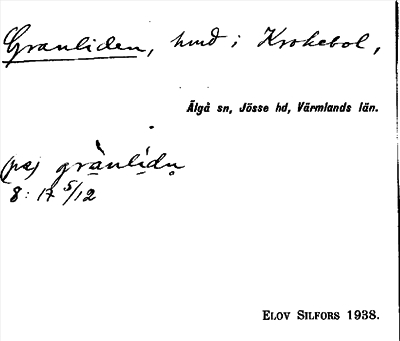 Granliden, hmd i Krokebol,
Älgå sn, Jösse hd, Värmlands län.
(på) grànlídn̥
8: 17 5/12
ELOV SILFORS 1938.